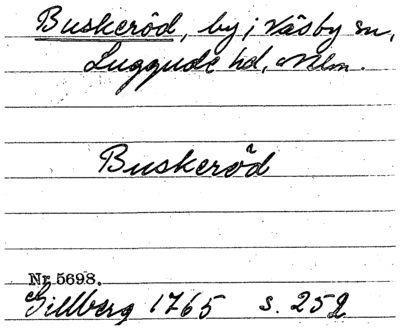 Buskeröd, by i Väsby sn,
Luggude hd, Mlm.
Buskeröd
Nr. 5698.
Gillberg 1765 s. 252